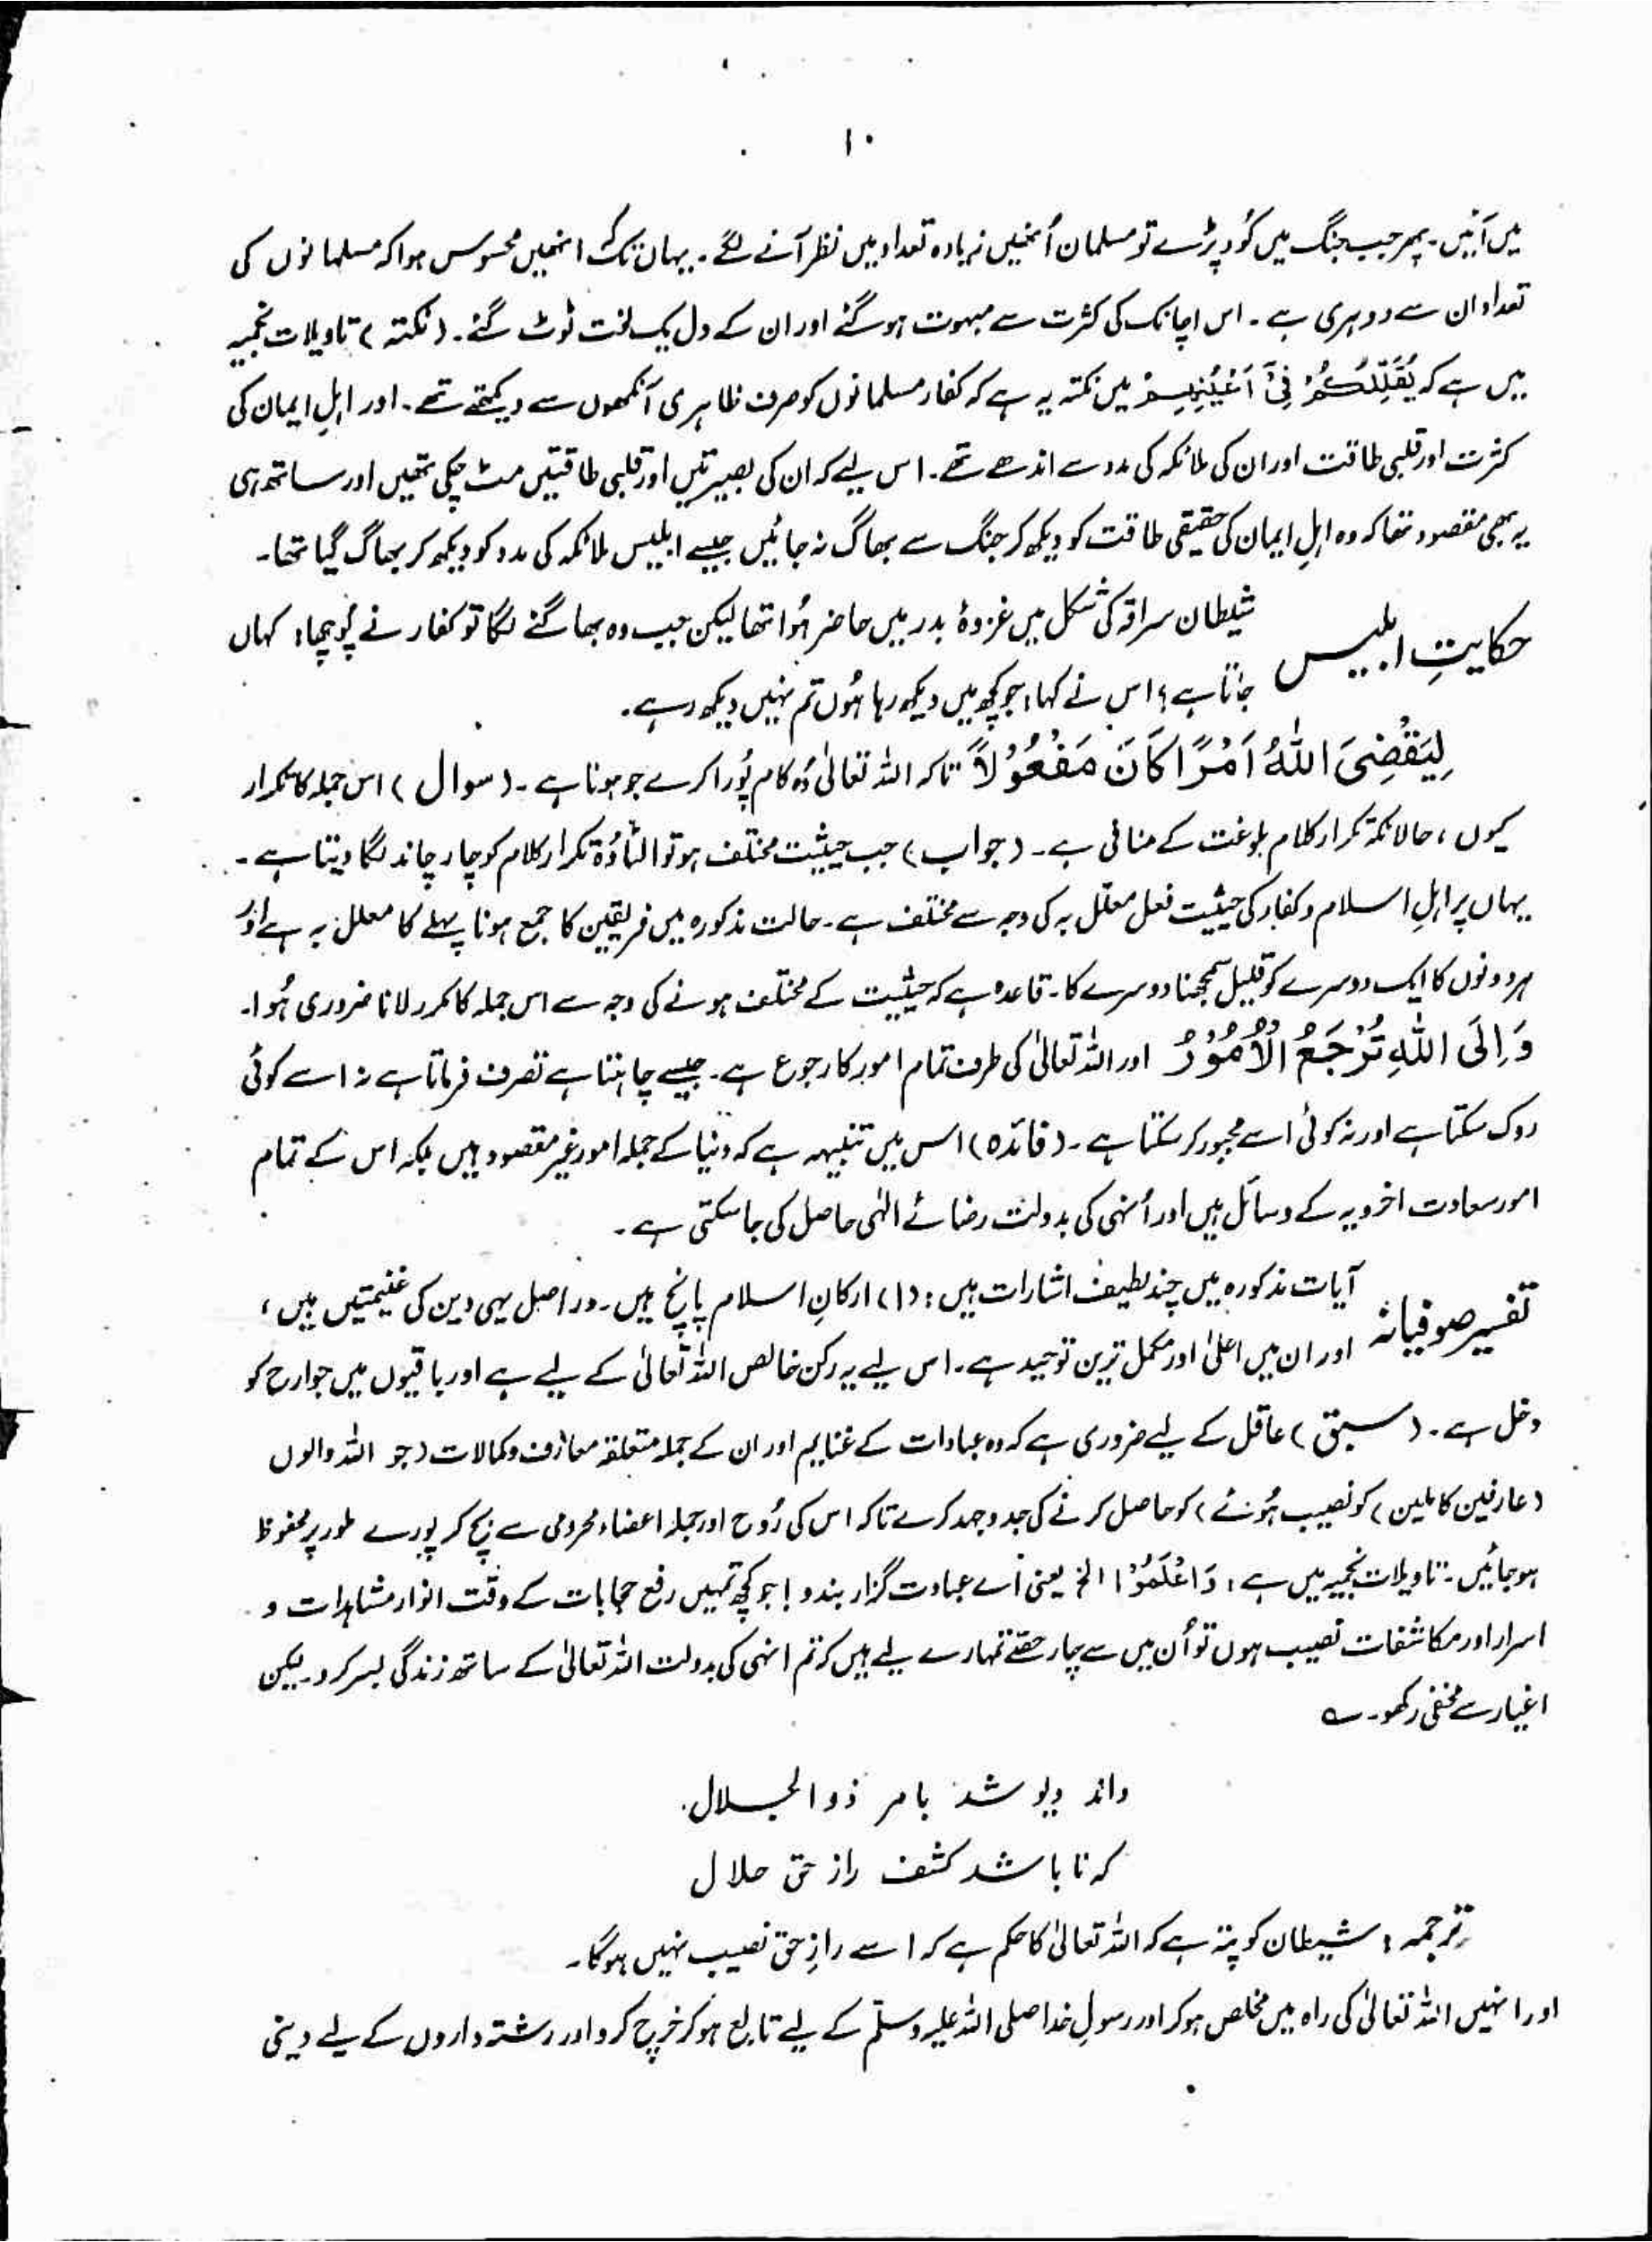 ۱۰
میں آئیں۔ پھر جب جنگ میں کُود پڑے تو مسلمان اُنھیں زیادہ تعداد میں نظر آنے لگے۔ یہاں تک کہ انھیں محسوس ہوا کہ مسلمانوں کی
تعداد ان سے دوہری ہے۔ اس اچانک کی کثرت سے مبہوت ہو گئے اور ان کے دل یک لخت ٹوٹ گئے۔ (نکتہ) تاویلات نجمیہ
میں ہے کہ یُقَلِّلُکُمْ فِیْٓ اَعْیُنِہِمْ میں نکتہ یہ ہے کہ کفار مسلمانوں کو صرف ظاہری آنکھوں سے دیکھتے تھے۔ اور اہلِ ایمان کی
کثرت اور قلبی طاقت اور ان کی ملائکہ کی مدد سے اندھے تھے۔ اس لیے کہ ان کی بصیرتیں اور قلبی طاقتیں مٹ چکی تھیں اور ساتھ ہی
یہ بھی مقصود تھا کہ وہ اہلِ ایمان کی حقیقی طاقت کو دیکھ کر جنگ سے بھاگ نہ جائیں جیسے ابلیس ملائکہ کی مدد کو دیکھ کر بھاگ گیا تھا۔
حکایتِ ابلیس شیطان سراقہ کی شکل میں غزوۂ بدر میں حاضر ہُوا تھا لیکن جب وہ بھاگنے لگا تو کفار نے پُوچھا: کہاں
جاتا ہے؟ اس نے کہا: جو کچھ میں دیکھ رہا ہُوں تم نہیں دیکھ رہے۔
لِیَقْضِیَ اللّٰہُ اَمْرًا کَانَ مَفْعُوْلًا تاکہ اللہ تعالیٰ وُہ کام پُورا کرے جو ہونا ہے۔ (سوال) اس جملہ کا تکرار
کیوں، حالانکہ تکرار کلام بلوغت کے منافی ہے۔ (جواب) جب حیثیت مختلف ہو تو الٹا وُہ تکرار کلام کو چار چاند لگا دیتا ہے۔
یہاں پر اہلِ اسلام و کفار کی حیثیت فعل معلّل بہ کی وجہ سے مختلف ہے۔ حالت مذکورہ میں فریقین کا جمع ہونا پہلے کا معلل بہ ہے اور
ہر دونوں کا ایک دوسرے کو قلیل سمجھنا دوسرے کا۔ قاعدہ ہے کہ حیثیت کے مختلف ہونے کی وجہ سے اس جملہ کا مکرر لانا ضروری ہُوا۔
وَ اِلَی اللّٰہِ تُرْجَعُ الْاُمُوْرُ اور اللہ تعالیٰ کی طرف تمام امور کا رجوع ہے۔ جیسے چاہتا ہے تصرف فرماتا ہے نہ اسے کوئی
روک سکتا ہے اور نہ کوئی اسے مجبور کر سکتا ہے۔ (فائدہ) اس میں تنبیہہ ہے کہ دنیا کے جملہ امور غیر مقصود ہیں بلکہ اس کے تمام
امور سعادت اخرویہ کے وسائل ہیں اور اُنہی کی بدولت رضائے الٰہی حاصل کی جا سکتی ہے۔
تفسیر صوفیانہ آیات مذکورہ میں چند لطیف اشارات ہیں: (۱) ارکانِ اسلام پانچ ہیں۔ در اصل یہی دین کی غنیمتیں ہیں،
اور ان میں اعلیٰ اور مکمل ترین توحید ہے۔ اس لیے یہ رکن خالص اللہ تعالیٰ کے لیے ہے اور باقیوں میں جوارح کو
دخل ہے۔ (سبق) عاقل کے لیے ضروری ہے کہ وہ عبادات کے غنایم اور ان کے جملہ متعلقہ معارف و کمالات (جو اللہ والوں
(عارفین کاملین) کو نصیب ہُوئے) کو حاصل کرنے کی جدوجہد کرے تاکہ اس کی رُوح اور جملہ اعضاء محرومی سے بچ کر پورے طور پر محفوظ
ہو جائیں۔ تاویلات نجمیہ میں ہے: وَاعْلَمُوْا الخ یعنی اے عبادت گزار بندو! جو کچھ تمہیں رفع حجابات کے وقت انوار مشاہدات و
اسرار اور مکاشفات نصیب ہوں تو اُن میں سے چار حصّے تمہارے لیے ہیں کہ تم انہی کی بدولت اللہ تعالیٰ کے ساتھ زندگی بسر کرو۔ لیکن
اغیار سے مخفی رکھو۔ ؎
داند دیو شد بامر ذوالجلال
کہ نا باشد کشف راز حق حلال
ترجمہ: شیطان کو پتہ ہے کہ اللہ تعالیٰ کا حکم ہے کہ اسے رازِ حق نصیب نہیں ہو گا۔
اور انہیں اللہ تعالیٰ کی راہ میں مخلص ہو کر اور رسولِ خدا صلی اللہ علیہ وسلّم کے لیے تابع ہو کر خرچ کرو اور رشتہ داروں کے لیے دینی